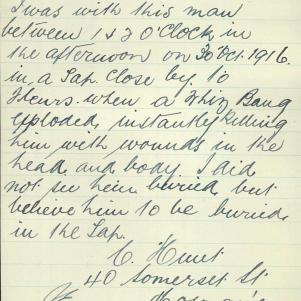 I was with this man
between 1 & 2 O'Clock in
the afternoon on 30 Oct. 1916.
in a Sap close by to
Flers. when a Whiz Bang
exploded, instantly killing
him with wounds in the
head and body. I did
not see him buried but
believe him to be buried
in the Sap.
C. Hunt
40 Somerset St